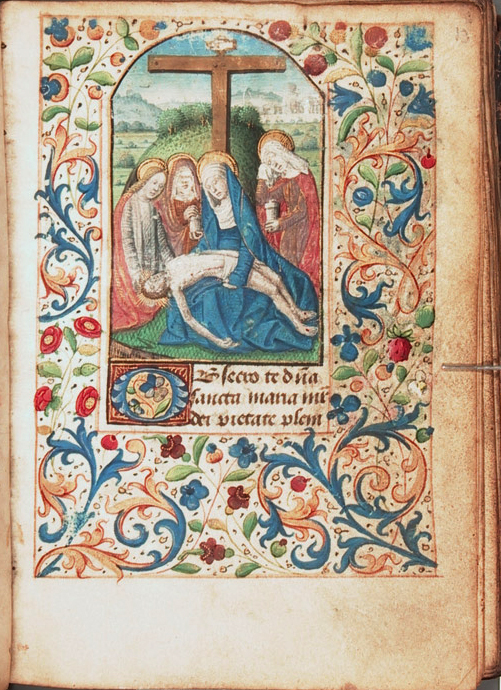 13
OBsecro te dña
sancta maria mr̄
dei pietate pleni